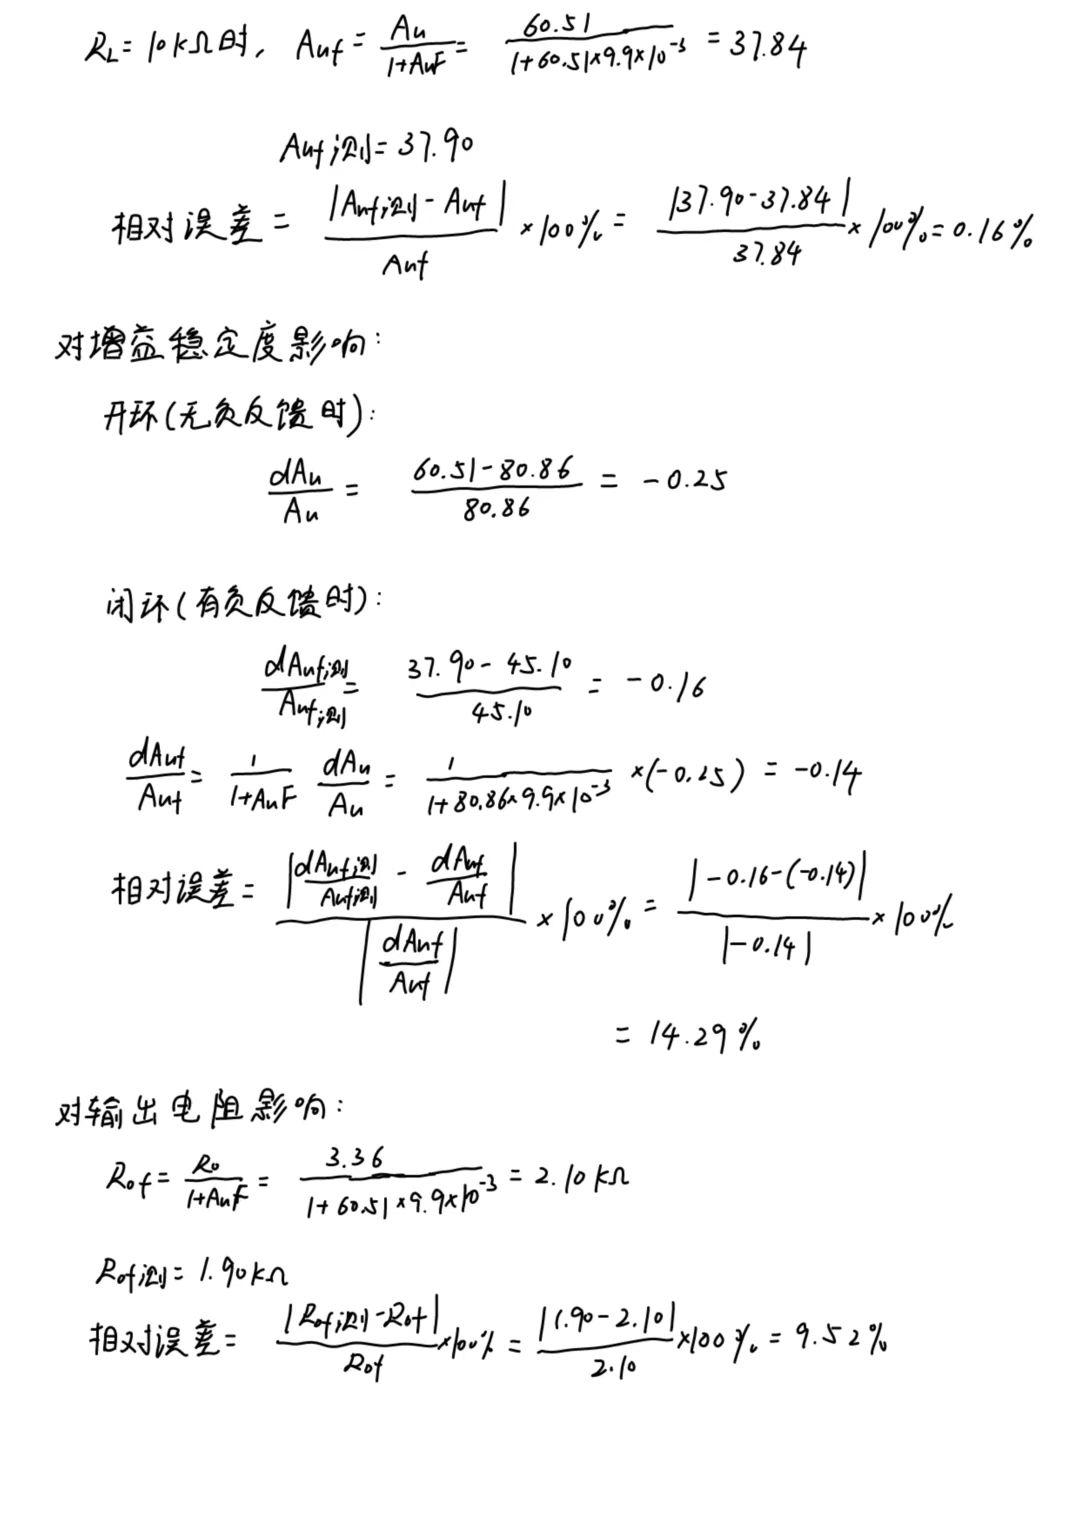 RL=10kΩ时, Auf = Au/(1+AuF) = 60.51/(1+60.51×9.9×10⁻³) = 37.84
Auf测=37.90
相对误差 = |Auf测-Auf|/Auf ×100% = |37.90-37.84|/37.84 ×100%=0.16%
对增益稳定度影响:
开环(无负反馈时):
dAu/Au = (60.51-80.86)/80.86 = -0.25
闭环(有负反馈时):
dAuf测/Auf测 = (37.90-45.10)/45.10 = -0.16
dAuf/Auf = 1/(1+AuF) dAu/Au = 1/(1+80.86×9.9×10⁻³) ×(-0.25) = -0.14
相对误差= |dAuf测/Auf测 - dAuf/Auf|/|dAuf/Auf| ×100% = |-0.16-(-0.14)|/|-0.14| ×100%
= 14.29%
对输出电阻影响:
Rof = Ro/(1+AuF) = 3.36/(1+60.51×9.9×10⁻³) = 2.10kΩ
Rof测= 1.90kΩ
相对误差= |Rof测-Rof|/Rof ×100% = |1.90-2.10|/2.10 ×100% = 9.52%